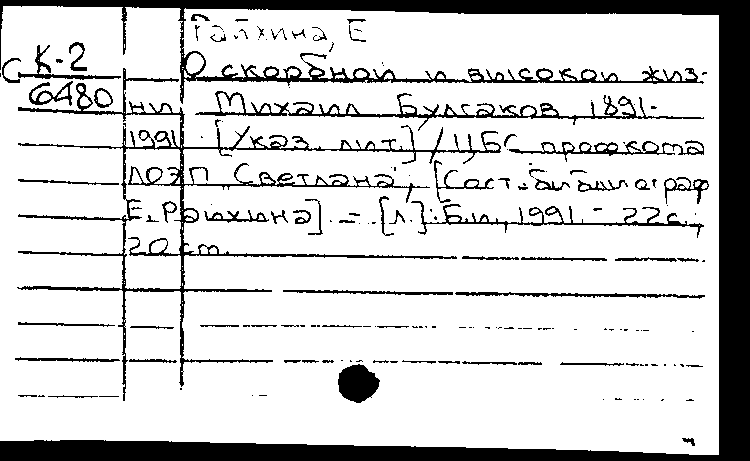 Райхина, Е
С К-2 О скорбной и высокой жиз-
6480 ни. Михаил Булгаков, 1891-
1991. [Указ. лит.] / ЦБС профкома
ЛОЭП "Светлана", [Сост. библиограф
Е. Райхина]. - [Л.]: Б.и., 1991. - 22с.,
20 cm.